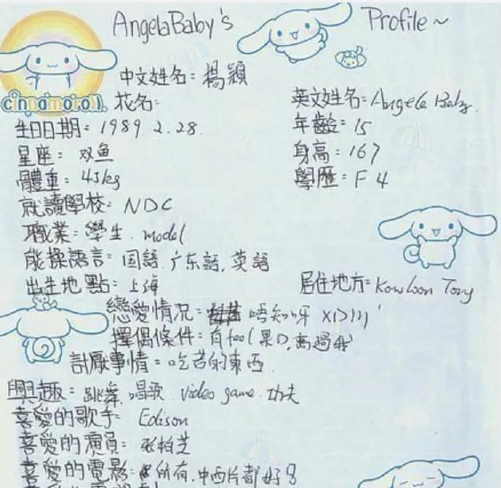 AngelaBaby's Profile~
中文姓名：楊穎
cinnamoroll 花名：
英文姓名：Angela Baby.
生日日期：1989.2.28.
年齡：15
星座：双鱼
身高：167
體重：45kg
學歷：F4
就讀學校：NDC
職業：學生.model
能操語言：国語.广东語.英語
出生地點：上海
居住地方：Kowloon Tong
戀愛情況：唔知呀 XD)))'
擇偶條件：有feel(果D,高過我
討厭事情：吃苦的東西
興趣：跳舞.唱歌.video game.功夫
喜愛的歌手：Edison
喜愛的演員：张柏芝
喜愛的電影：所有.中西片都好。